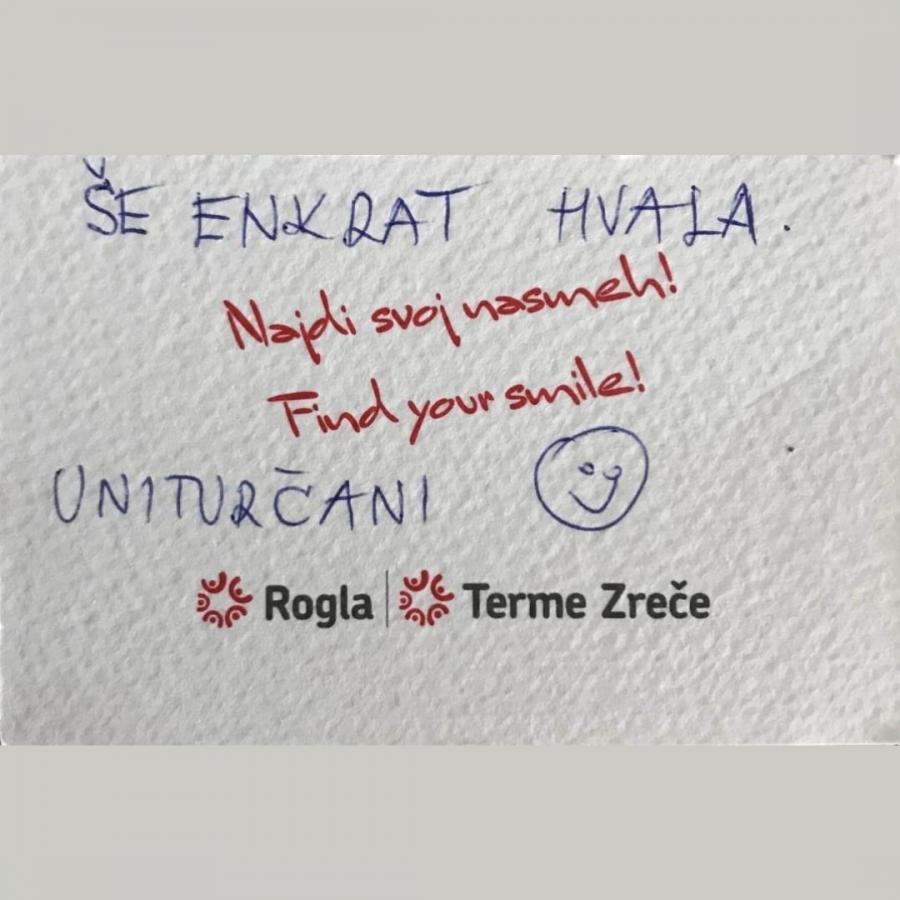 ŠE ENKRAT HVALA.
Najdi svoj nasmeh!
Find your smile!
UNITURČANI
Rogla | Terme Zreče